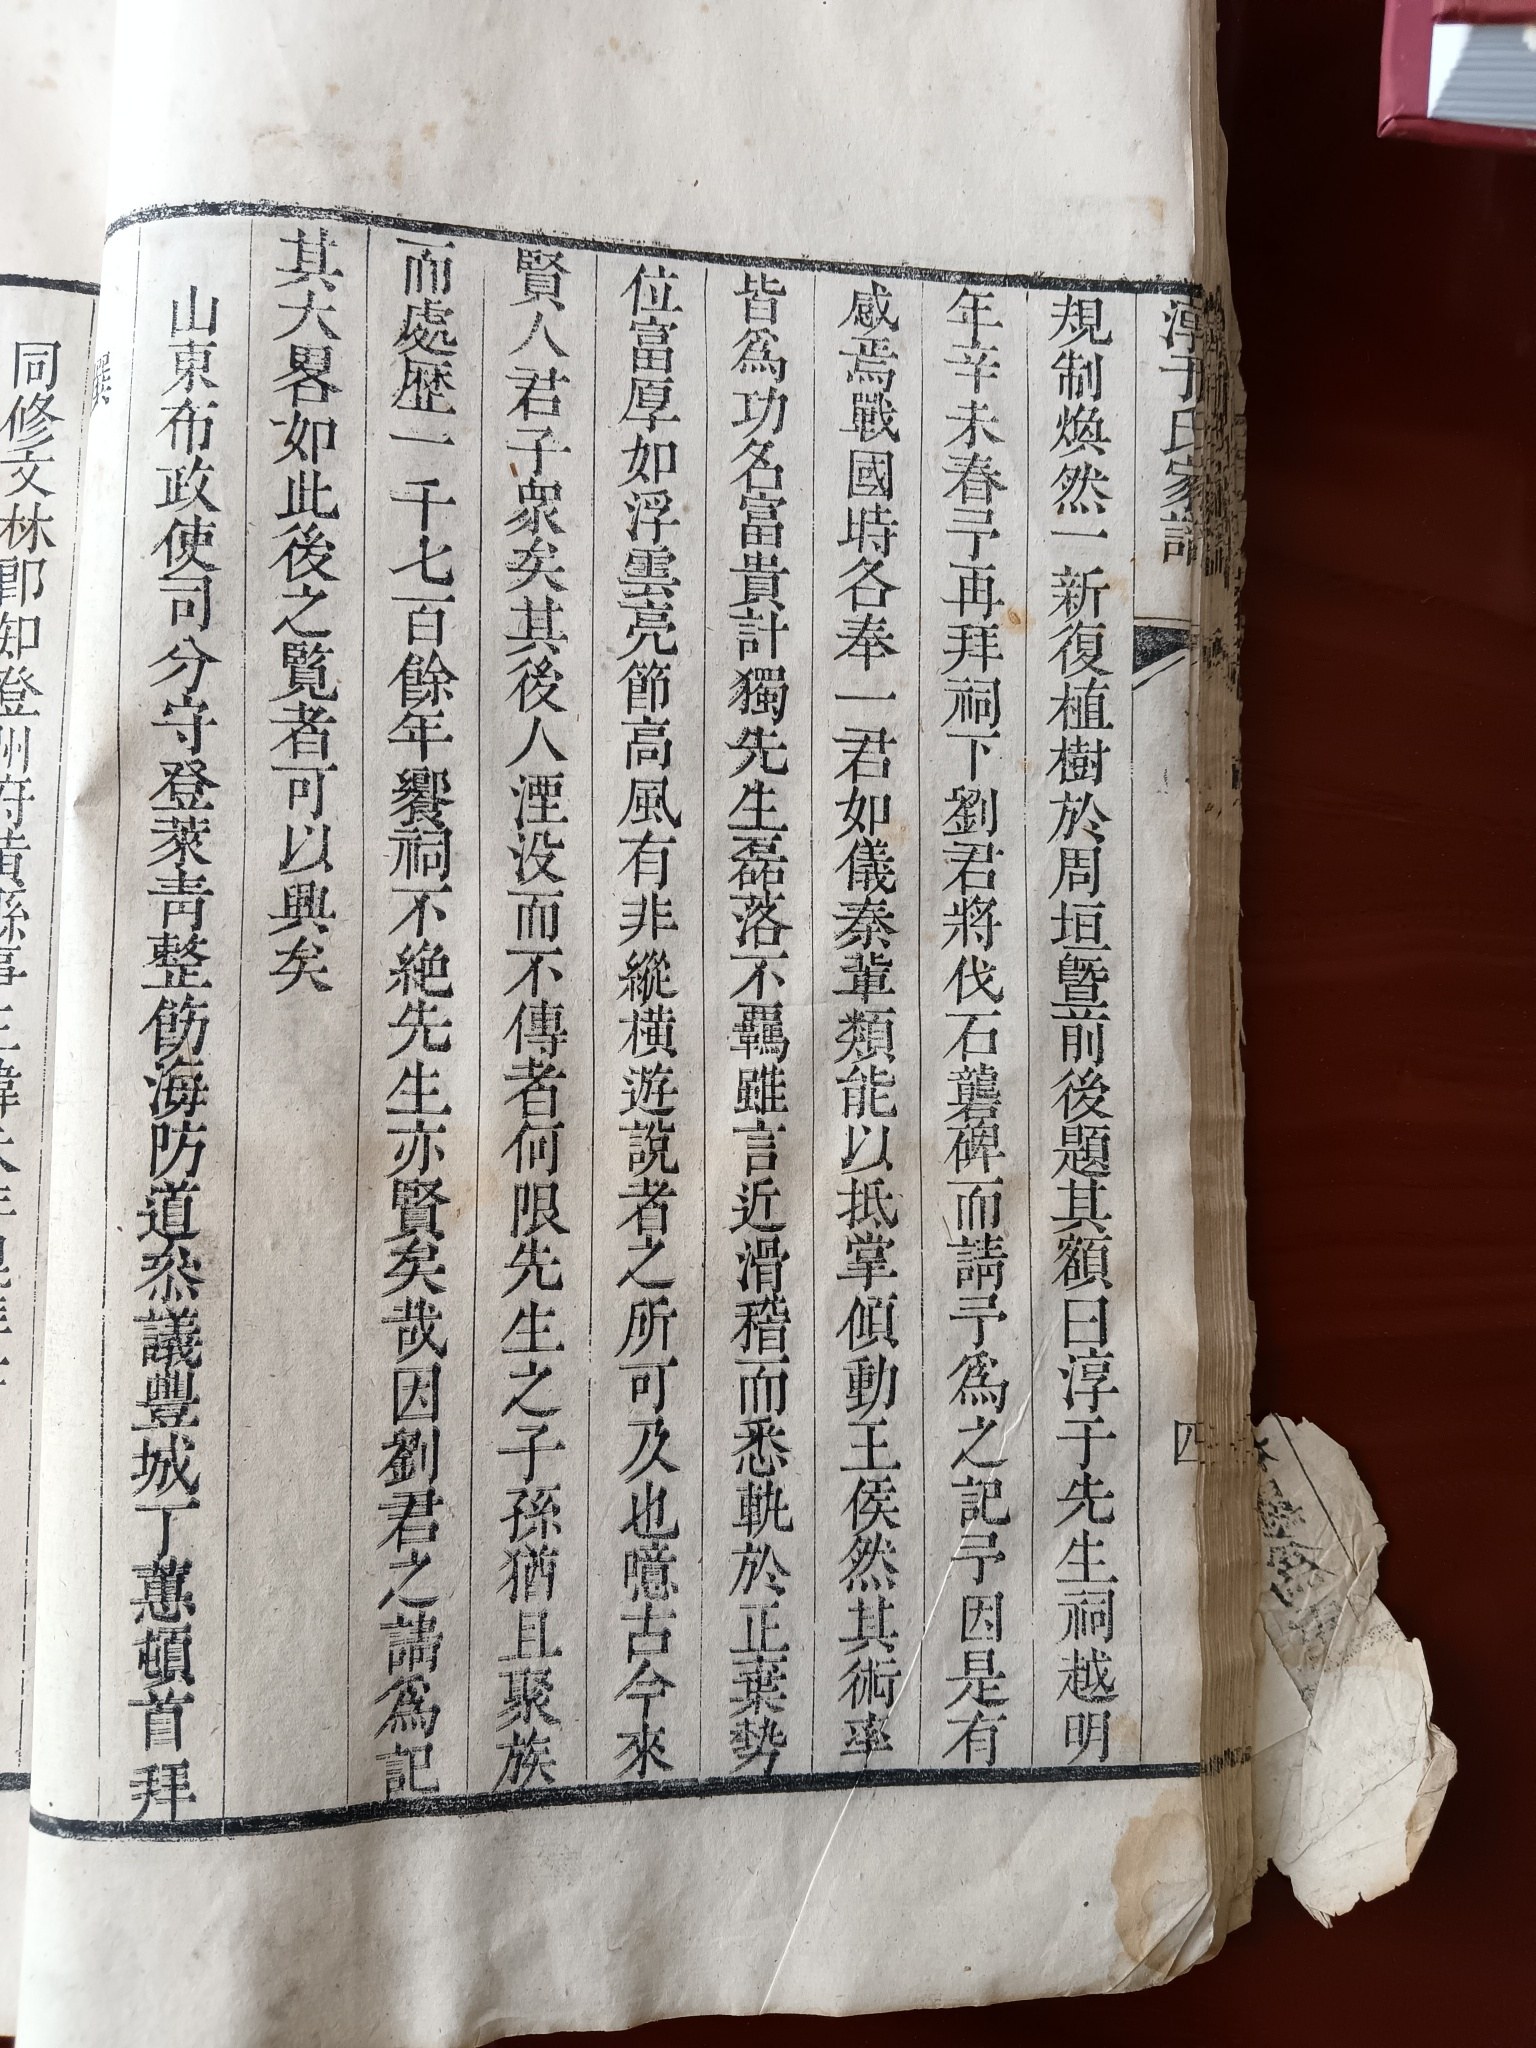 淳于氏家譜
四
規制煥然一新復植樹於周垣暨前後題其額曰淳于先生祠越明
年辛未春予再拜祠下劉君將伐石礱碑而請予為之記予因是有
感焉戰國時各奉一君如儀秦輩類能以抵掌傾動王侯然其術率
皆為功名富貴計獨先生磊落不羈雖言近滑稽而悉軌於正棄勢
位富厚如浮雲亮節高風有非縱橫遊說者之所可及也噫古今來
賢人君子衆矣其後人湮没而不傳者何限先生之子孫猶且聚族
而處歷一千七百餘年饗祠不絶先生亦賢矣哉因劉君之請為記
其大畧如此後之覽者可以興矣
山東布政使司分守登萊靑整飭海防道叅議豐城丁蕙頓首拜
撰
同修文林郎知登州府黃縣事